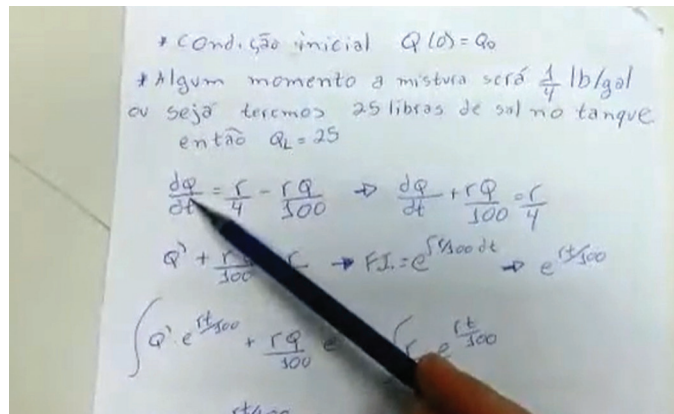 * Condição inicial Q(0) = Q₀
* Algum momento a mistura será 1/4 lb/gal
ou seja teremos 25 libras de sal no tanque
então Q_L = 25
dQ/dt = r/4 - rQ/100 → dQ/dt + rQ/100 = r/4
Q' + → F.I. = e^∫r/100 dt → e^rt/100
∫ Q' · e^rt/100 + rQ/100 e ∫ r e^rt/100